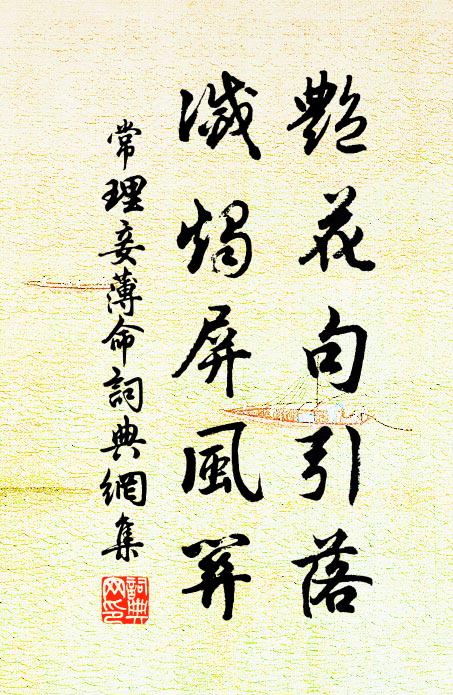 艷花句引落
滅燭屏風關
常理妾薄命詞典網集
詞典
网印